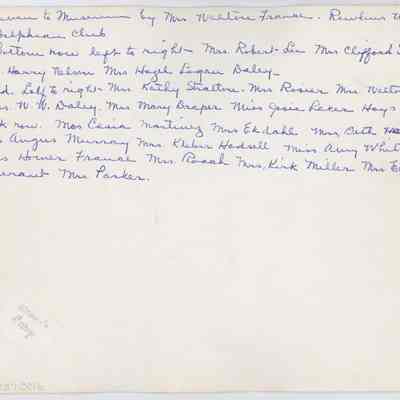 to Museum by Mrs Walton France. Rawlins
Delphian Club
Bottom row left to right - Mrs. Robert Lee Mrs Clifford
Harry Nelson Mrs Hazel Logan Daley -
Left to right - Mrs. Kathy Stratton. Mrs Rosier Mrs
W. W. Daley. Mrs Mary Draper Miss Josie Reker Hays
row. Mrs Casia Martinez Mrs Ekdahl Mrs Beth
Angus Murray Mrs. Kleber Hadsell Miss Amy
Homer France Mrs. Roach Mrs. Kirk Miller Mrs
Mrs Parker.